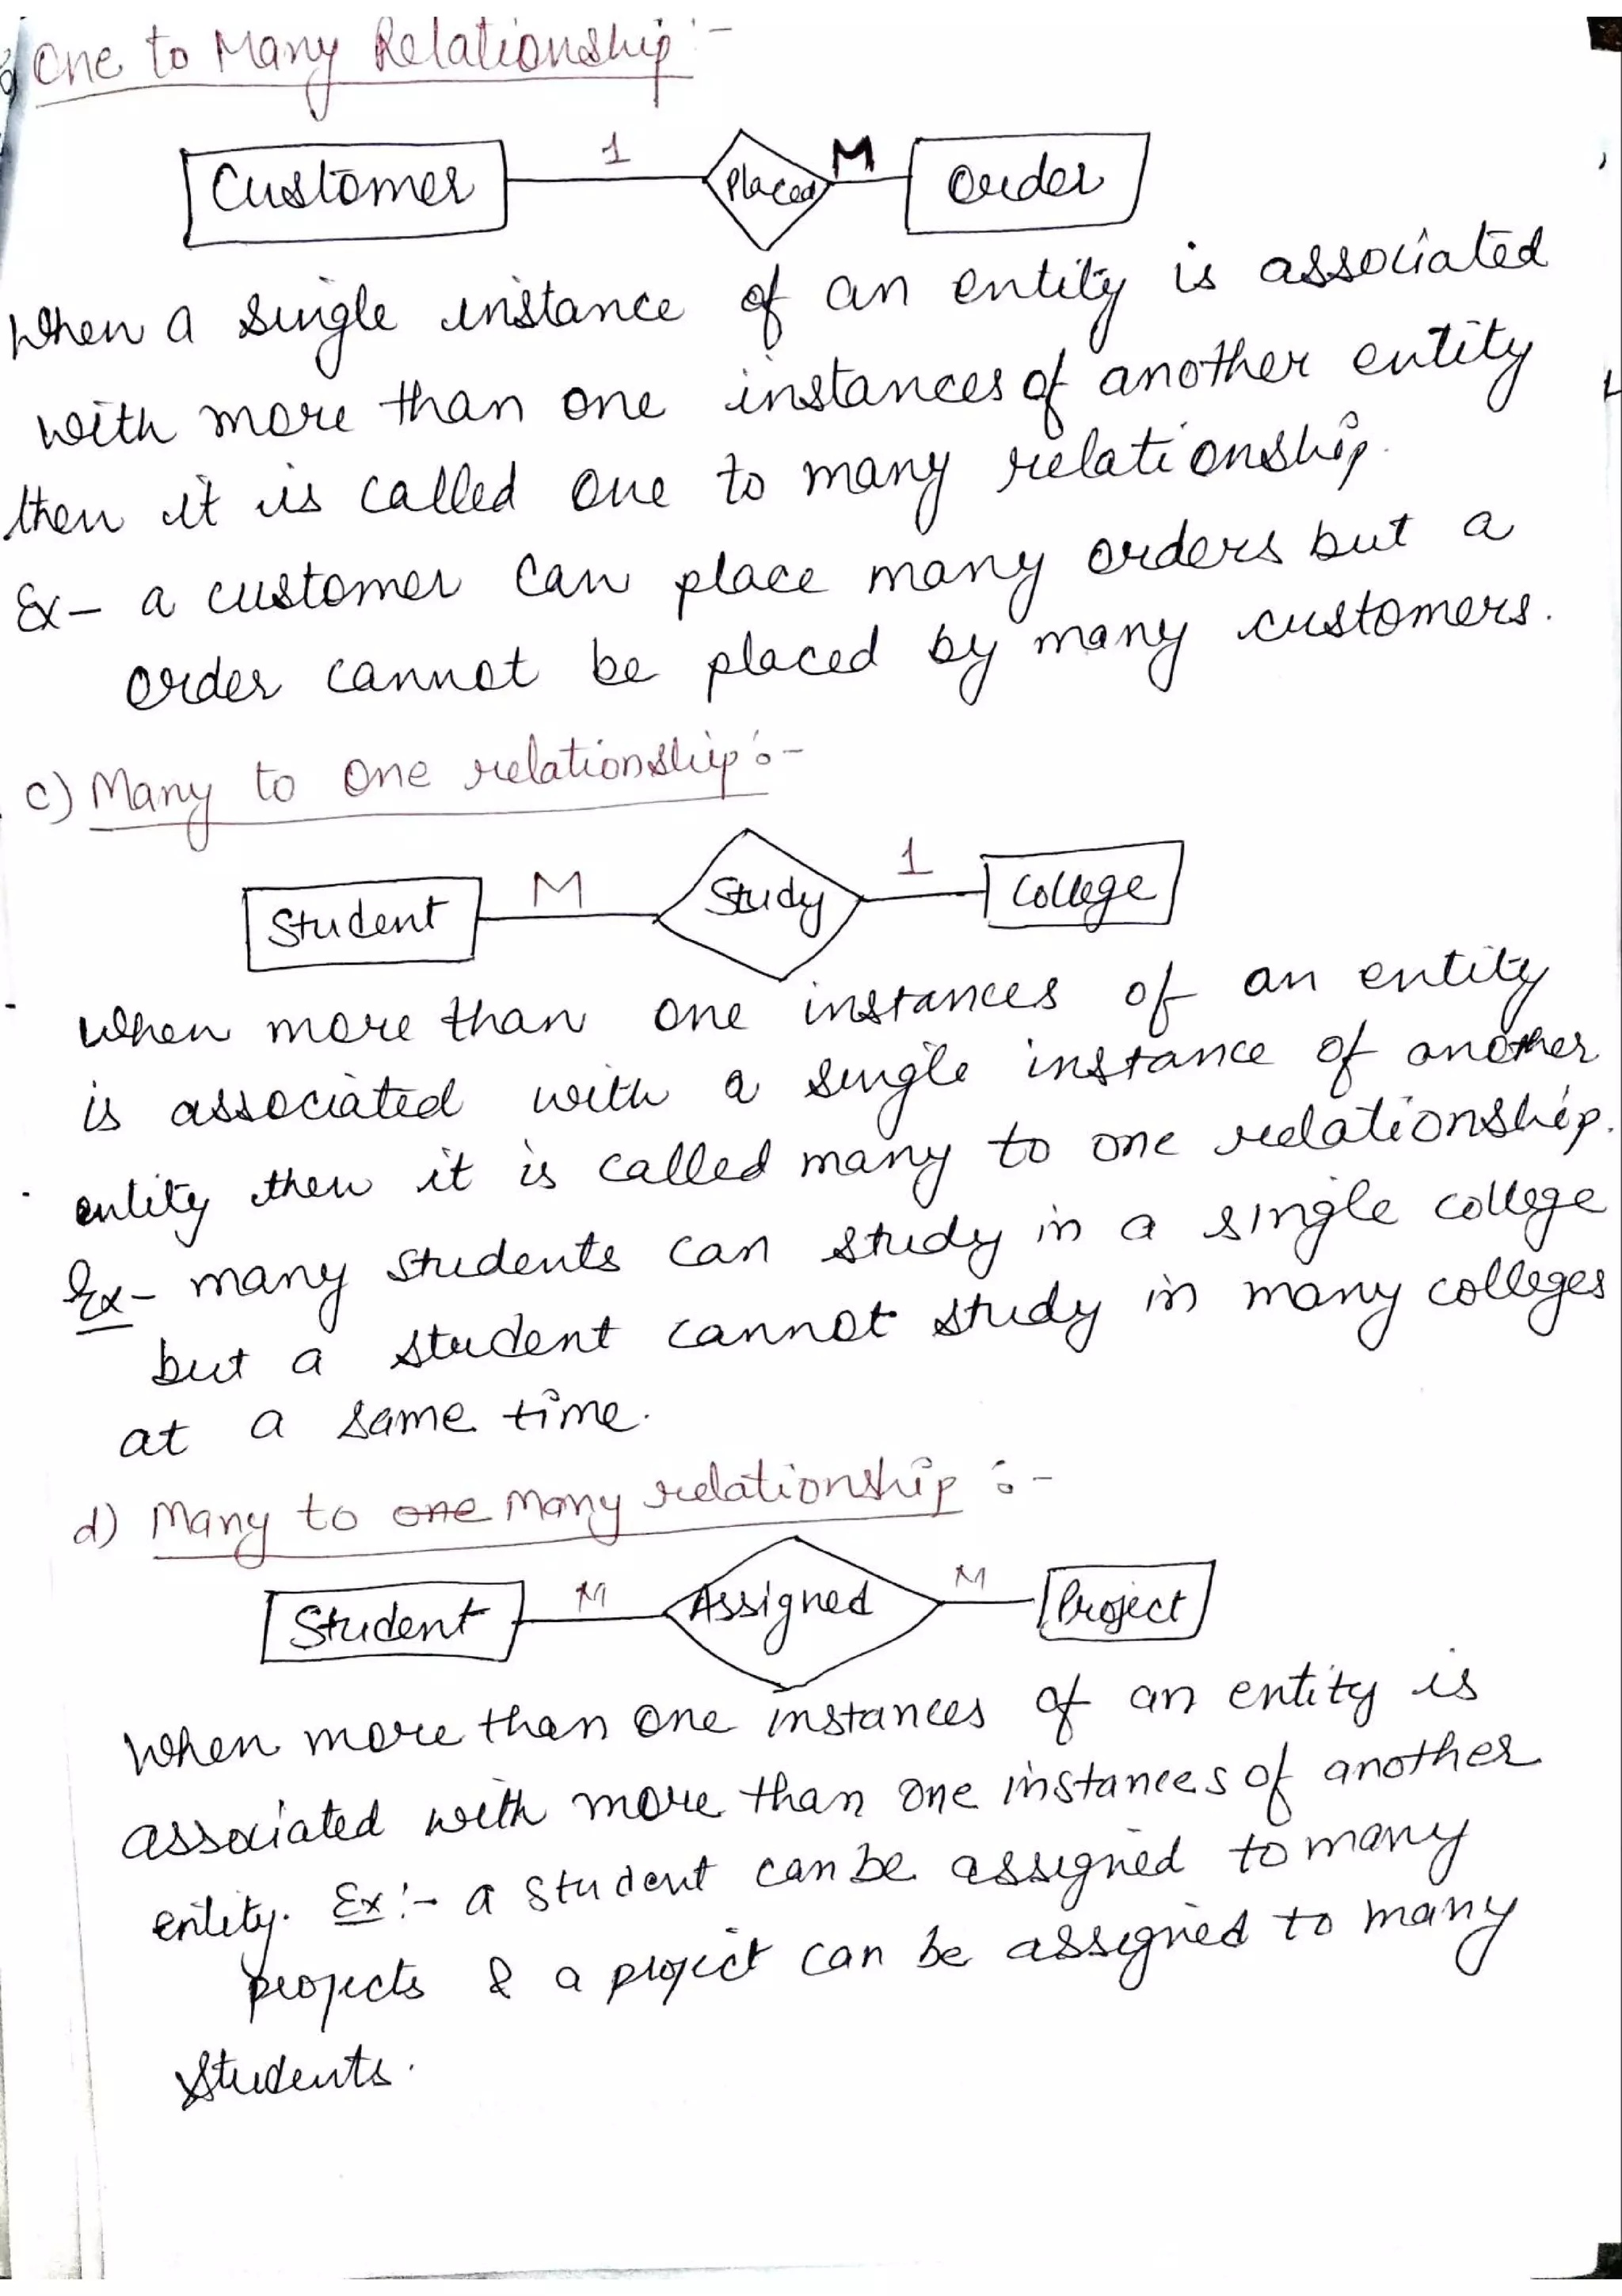 One to Many Relationship :-
Customer 1 Placed M Order
When a single instance of an entity is associated
with more than one instances of another entity
then it is called one to many relationship.
Ex- a customer can place many orders but a
order cannot be placed by many customers.
c) Many to One relationship :-
Student M Study 1 College
When more than one instances of an entity
is associated with a single instance of another
entity then it is called many to one relationship.
Ex- many students can study in a single college
but a student cannot study in many colleges
at a same time.
d) Many to one Many relationship :-
Student M Assigned M Project
When more than one instances of an entity is
associated with more than one instances of another
entity. Ex :- a student can be assigned to many
projects & a project can be assigned to many
students.